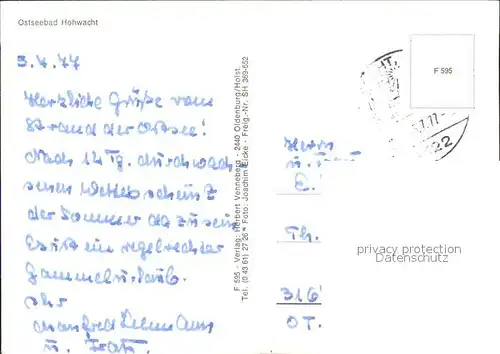 Ostseebad Hohwacht
3.7.77
Herzliche Grüße vom
Strand der Ostsee!
Nach 14 Tg. durchwach
senem Wetter scheint
der Sommer da zu sein
Es ist ein regelrechter
Gammelurlaub.
Ihr
Manfred
u. Frau.
F 595 - Verlag: Herbert Venneberg - 2440 Oldenburg/Holst.
Tel. (0 43 61) 27 26 * Foto: Joachim Eicke - Freig.-Nr. SH 369-652
F 595
7.77-
22
Herrn
u. Frau
E.
Th.
316
OT.
privacy protection
Datenschutz